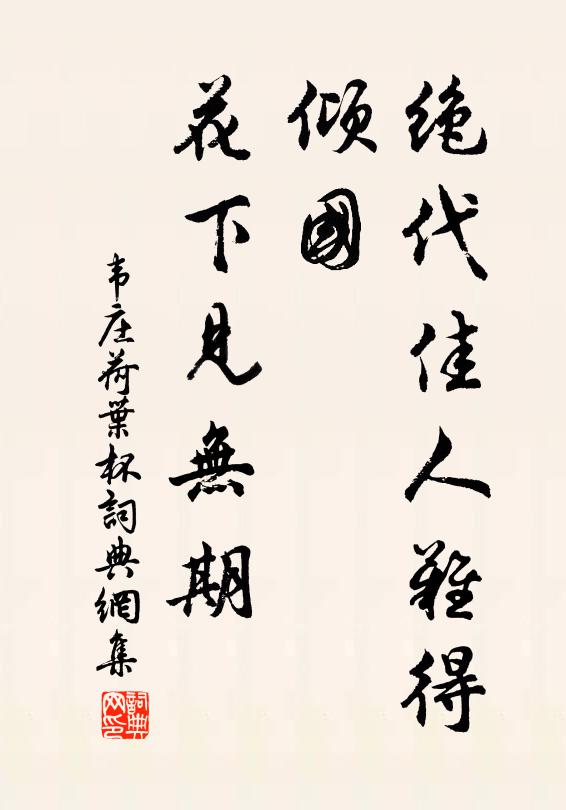 绝代佳人難得
傾國
花下見無期
韦庄荷葉杯詞典網集
詞典
网印